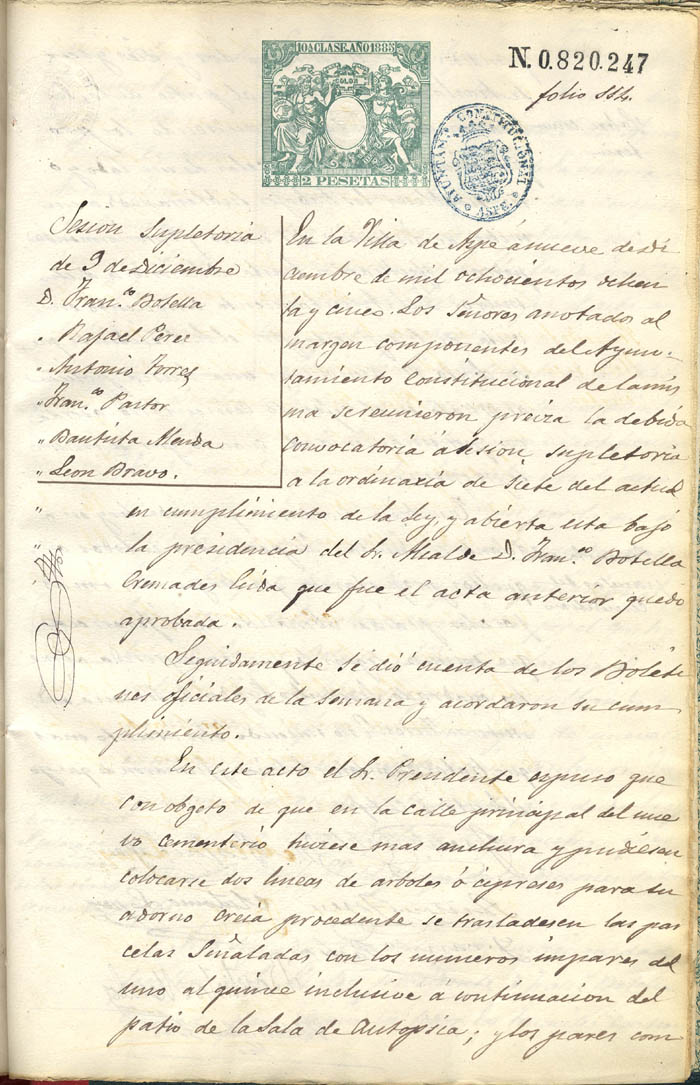 10ª CLASE. AÑO 1885
COLON
2 PESETAS
N. 0.820.247
folio
AYUNTAMIENTO CONSTITUCIONAL
ASPE
Sesion supletoria
de 9 de Diciembre
D. Fran.co Botella
" Rafael Perez
" Antonio Torres
" Fran.co Pastor
" Bautista Alenda
" Leon Bravo.
En la Villa de Aspe á nueve de Di
ciembre de mil ochocientos ochen
ta y cinco. Los Señores anotados al
margen componentes del Ayun-
tamiento Constitucional de la mis
ma se reunieron previa la debida
convocatoria á sesion supletoria
a la ordinaria de siete del actual
en cumplimiento de la Ley, y abierta esta bajo
la presidencia del Sr. Alcalde D. Fran.co Botella
Cremades leida que fue el acta anterior quedó
aprobada.
Seguidamente se dió cuenta de los Boleti
nes oficiales de la semana y acordaron su cum-
plimiento.
En este acto el Sr. Presidente espuso que
con objeto de que en la calle principal del nue
vo cementerio hubiese mas anchura y pudiesen
colocarse dos lineas de arboles ó cipreses para su
adorno creia procedente se trasladasen las par
celas señaladas con los numeros impares del
uno al quince inclusive á continuacion del
patio de la Sala de Autopsia; y los pares com